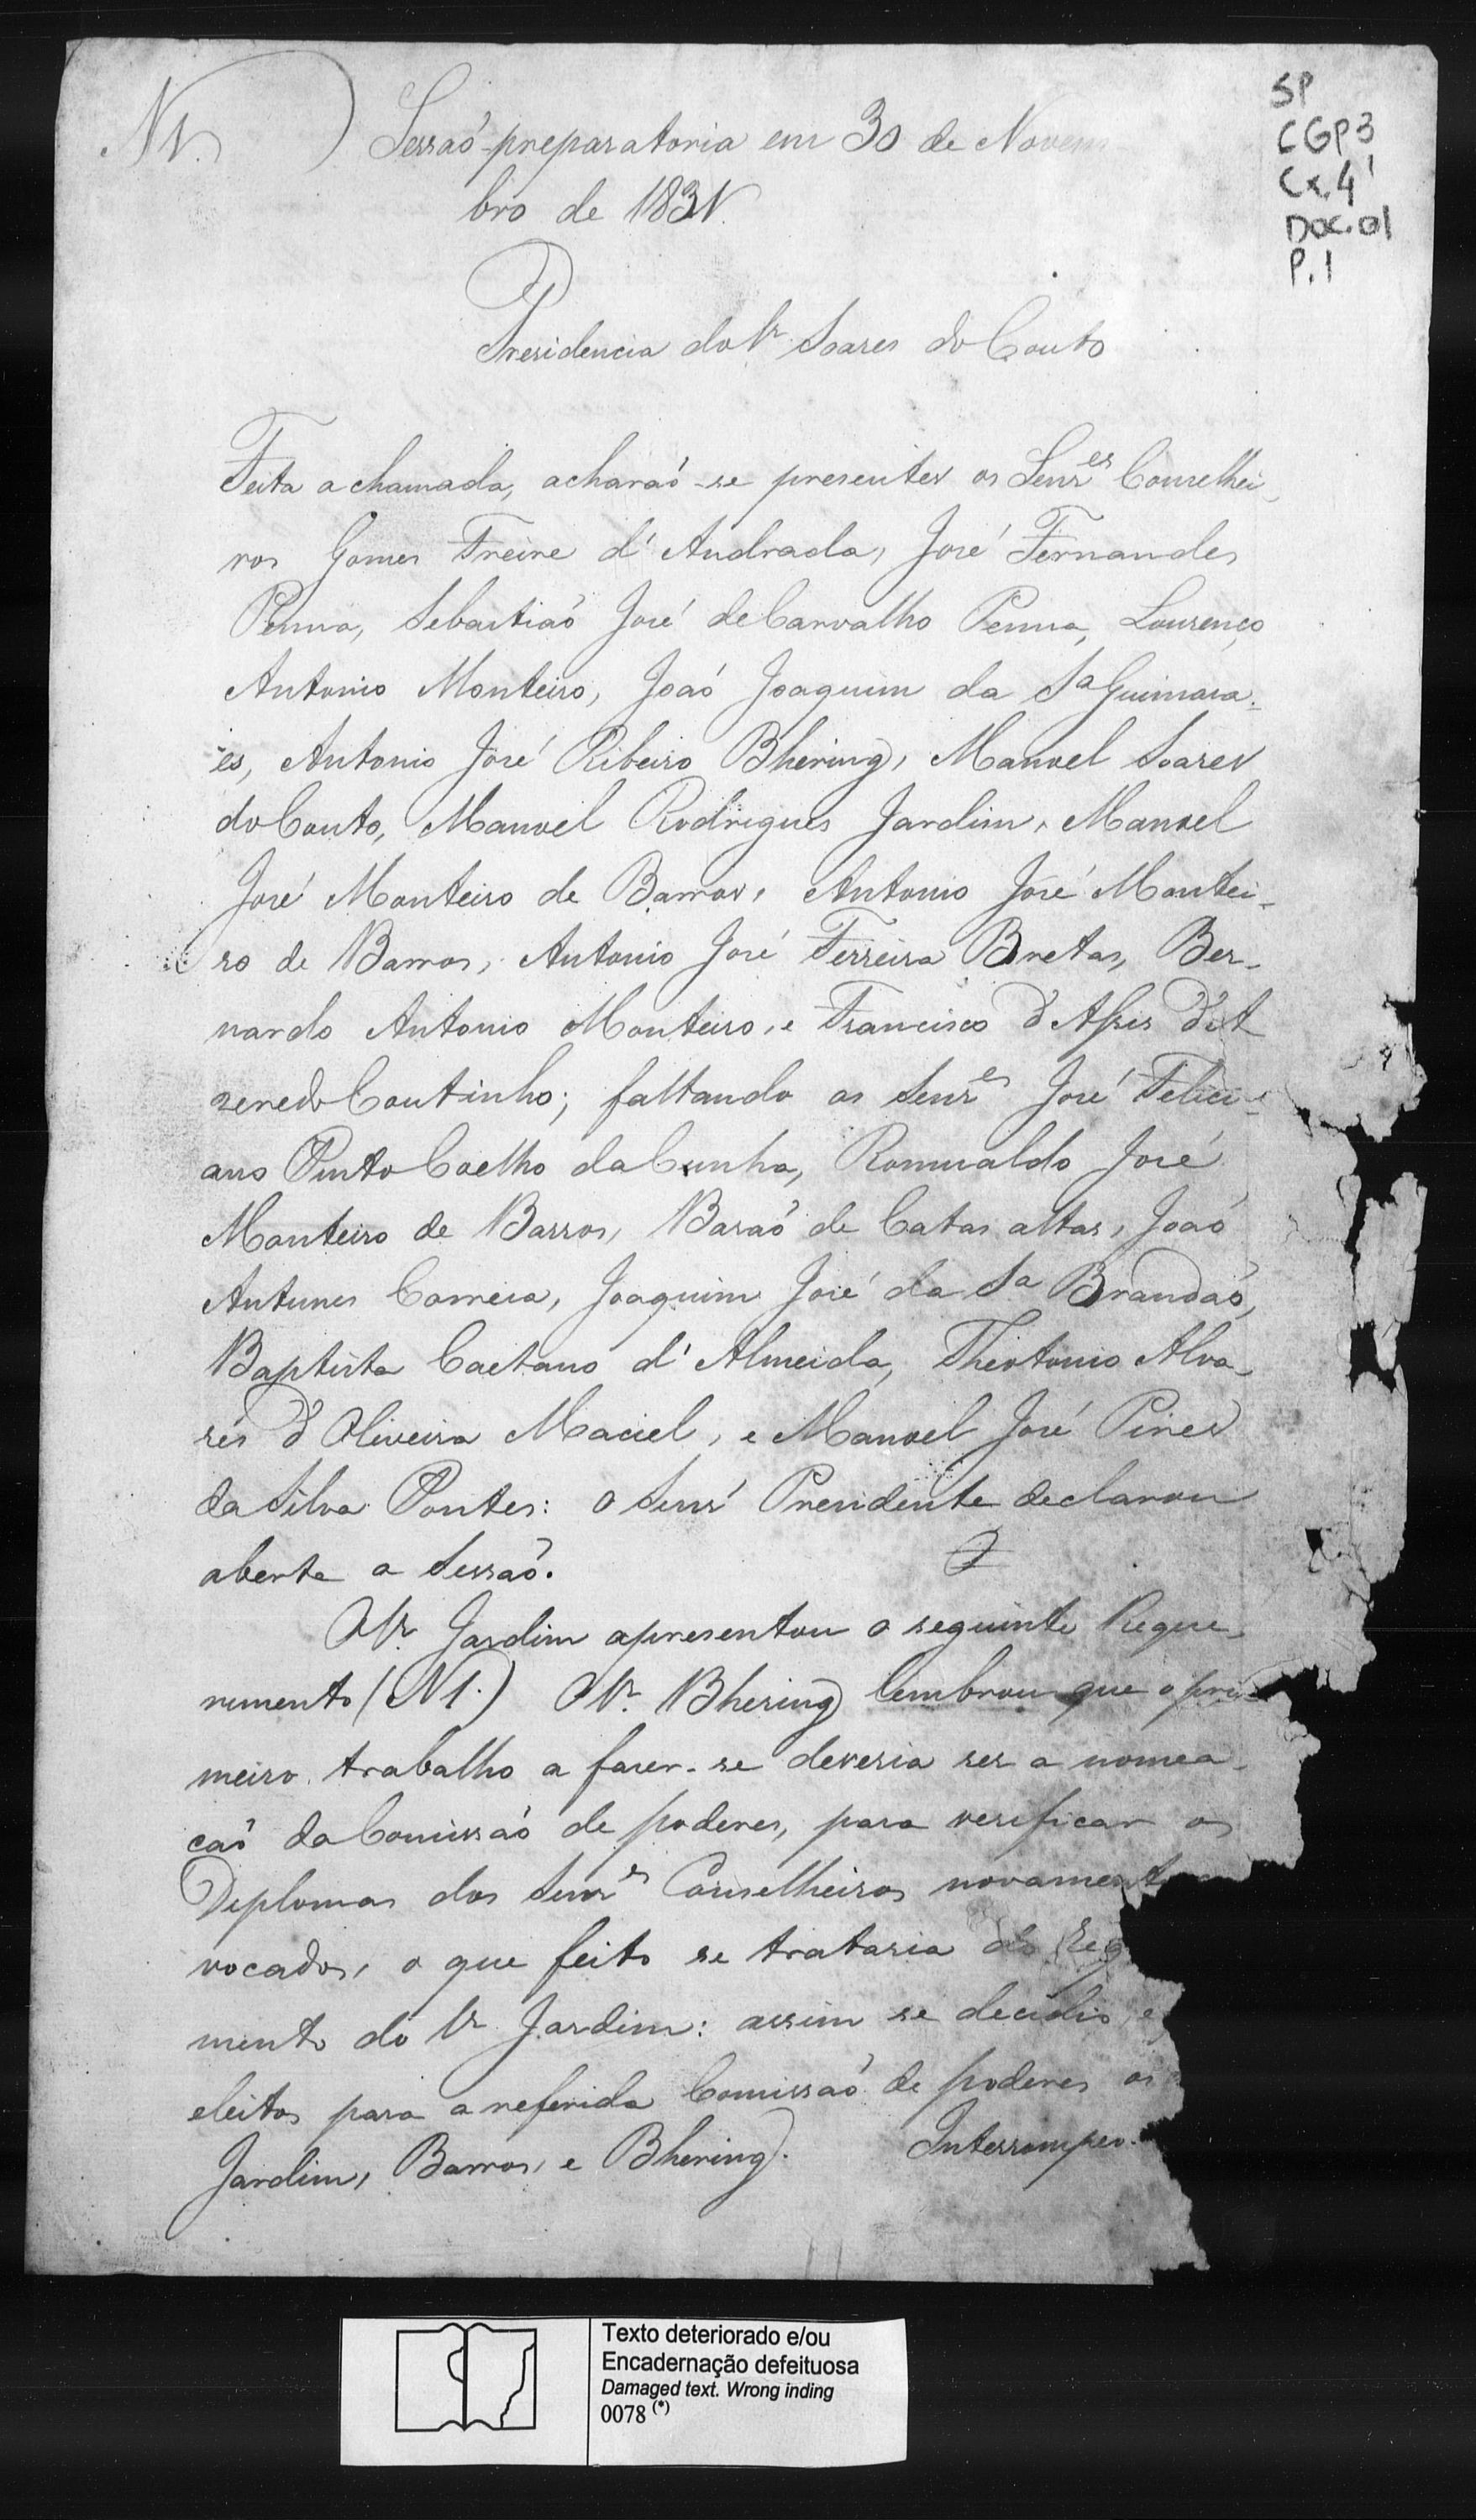 SP
CGP3
Cx.41
Doc.01
P.1
N1.) Sessaõ preparatoria em 30 de Novem
bro de 1831.
Presidencia do Sr. Soares do Couto
Feita a chamada, acharaõ-se presentes os Senres Conselhei-
ros Gomes Freire d'Andrada, José Fernandes
Penna, Sebastiaõ José de Carvalho Penna, Lourenço
Antonio Monteiro, Joaõ Joaquim da Sa Guimara-
es, Antonio José Ribeiro Bhering, Manoel Soares
do Couto, Manoel Rodrigues Jardim, Manoel
José Monteiro de Barros, Antonio José Montei-
ro de Barros, Antonio José Ferreira Bretas, Ber-
nardo Antonio Monteiro, e Francisco d'Assis d'A
zeredo Coutinho; faltando os Senres José Felici-
ano Pinto Coelho da Cunha, Romualdo José
Monteiro de Barros, Baraõ de Catas altas, Joaõ
Antunes Correia, Joaquim José da Sa Brandaõ,
Baptista Caetano d'Almeida, Theotonio Alva-
res d'Oliveira Maciel, e Manoel José Pires
da Silva Pontes: o Senr Presidente declarou
aberta a Sessaõ.
O Sr. Jardim apresentou o seguinte Reque-
rimento (N1.) O Sr. Bhering lembrou que o pri
meiro trabalho a fazer-se deveria ser a nomea-
caõ da Comissaõ de poderes, para verificar os
Diplomas dos Senres Conselheiros novament
vocados, o que feito se trataria do Req
mento do Sr. Jardim: assim se decidio, e
eleitos para a referida Comissaõ de poderes os
Jardim, Barros, e Bhering. Interrompeo-
Texto deteriorado e/ou
Encadernação defeituosa
Damaged text. Wrong inding
0078 (*)